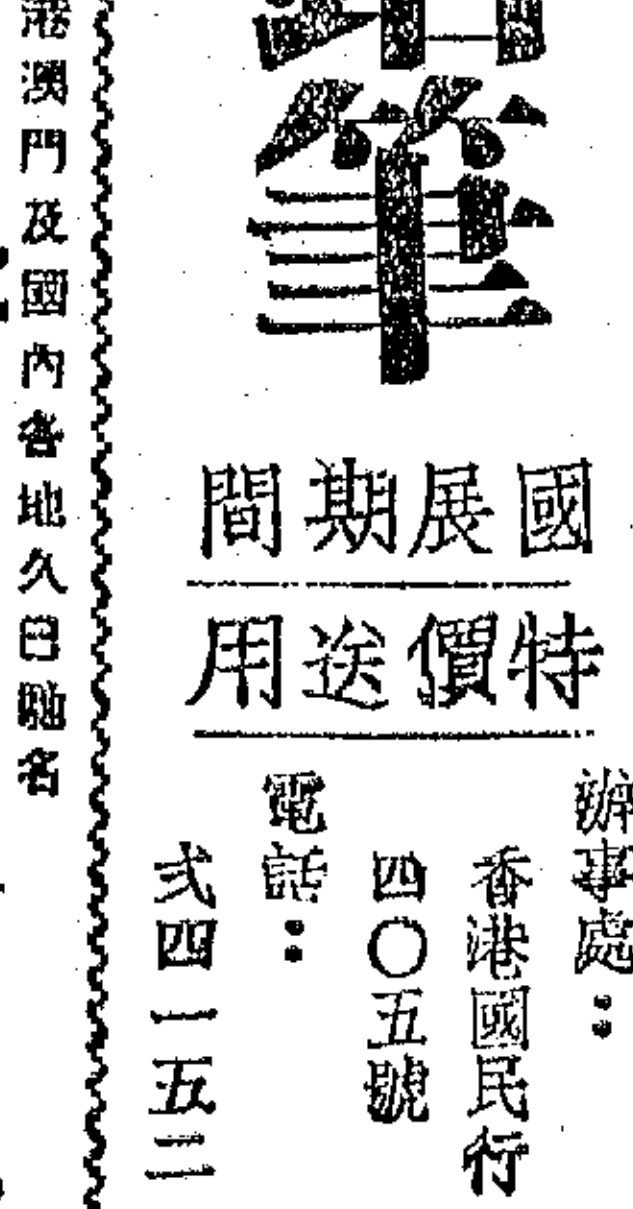 筆
國展期間
特價送用
辦事處：
香港國民行
四〇五號
電話：
弍四一五二
港澳門及國內各地久已馳名